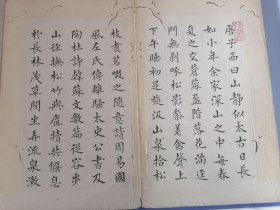 唐子西曰山静似太古日長
如小年余家深山之中每春
夏之交蒼蘚盈階落花滿逕
門無剥啄松影參差禽聲上
下午睡初足旋汲山泉拾松
枝煮茗啜之隨意讀周易國
風左氏傳離騷太史公書及
陶杜詩韓蘇文數篇從容步
山徑撫松竹與麛犢共偃息
於長林茂草間坐弄流泉漱